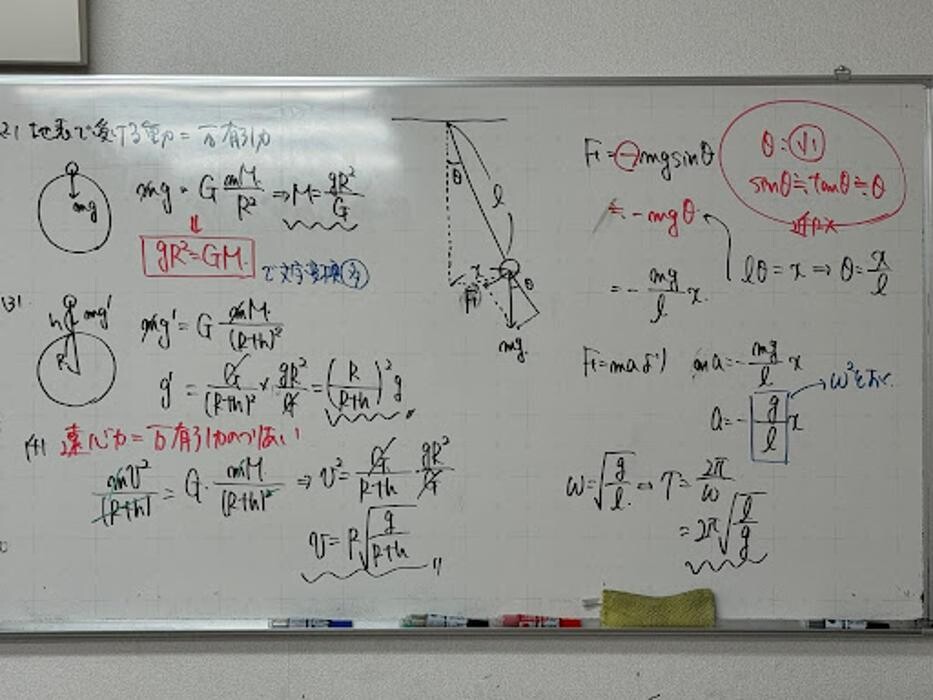 (2) 地表で受ける重力 = 万有引力
mg
mg = G mM/R² ⇒ M = gR²/G
⇓
gR² = GM
で文字変換
(3)
h mg'
R
mg' = G mM/(R+h)²
g' = G/(R+h)² × gR²/G = (R/(R+h))² g
(4) 遠心力 = 万有引力のつりあい
mv²/(R+h) = G・mM/(R+h)² ⇒ v² = G/(R+h) gR²/G
v = R√(g/(R+h)) 〃
θ
l
x
θ
F
mg
F = -mg sinθ
≒ -mgθ
= - mg/l x
θ =
sinθ ≒ tanθ ≒ θ
近似
lθ = x ⇒ θ = x/l
F = maより ma = - mg/l x
a = - g/l x
ω²とおく
ω = √(g/l) T = 2π/ω
= 2π√(l/g)